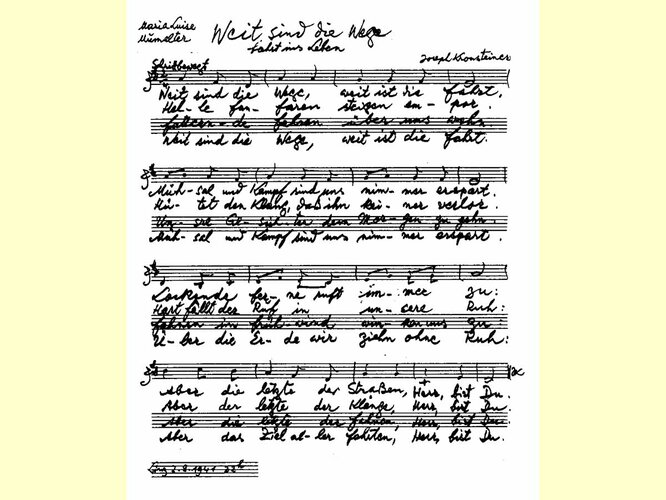 Maria Luise
Mümelter
Weit sind die Wege
Fahrt ins Leben
Joseph Kronsteiner
Schrittbewegt
Weit sind die Wege, weit ist die Fahrt.
Hel-le Fan-faren steigen em-por.
flattern-de Fahnen über uns wehn
Weit sind die Wege, weit ist die Fahrt.
Müh-sal und Kampf sind uns nim-mer erspart.
Hü-tet den Klang, daß ihn kei-ner verlor.
Un-sre Ge-sich-ter dem Mor-gen zu gehn.
Müh-sal und Kampf sind uns nim-mer erspart.
Lockende Fer-ne ruft im-mer zu:
Hart fällt der Ruf in un-sere Ruh:
Fahnen im Früh-wind win-ken uns zu:
Ü-ber die Er-de wir ziehn ohne Ruh:
Aber die letzte der Straßen, Herr, bist Du.
Aber der letzte der Klänge, Herr, bist Du.
Aber die letzte der Fahnen, Herr, bist Du.
Aber das Ziel al-ler Fahrten, Herr, bist Du.
2.8.1941 22h